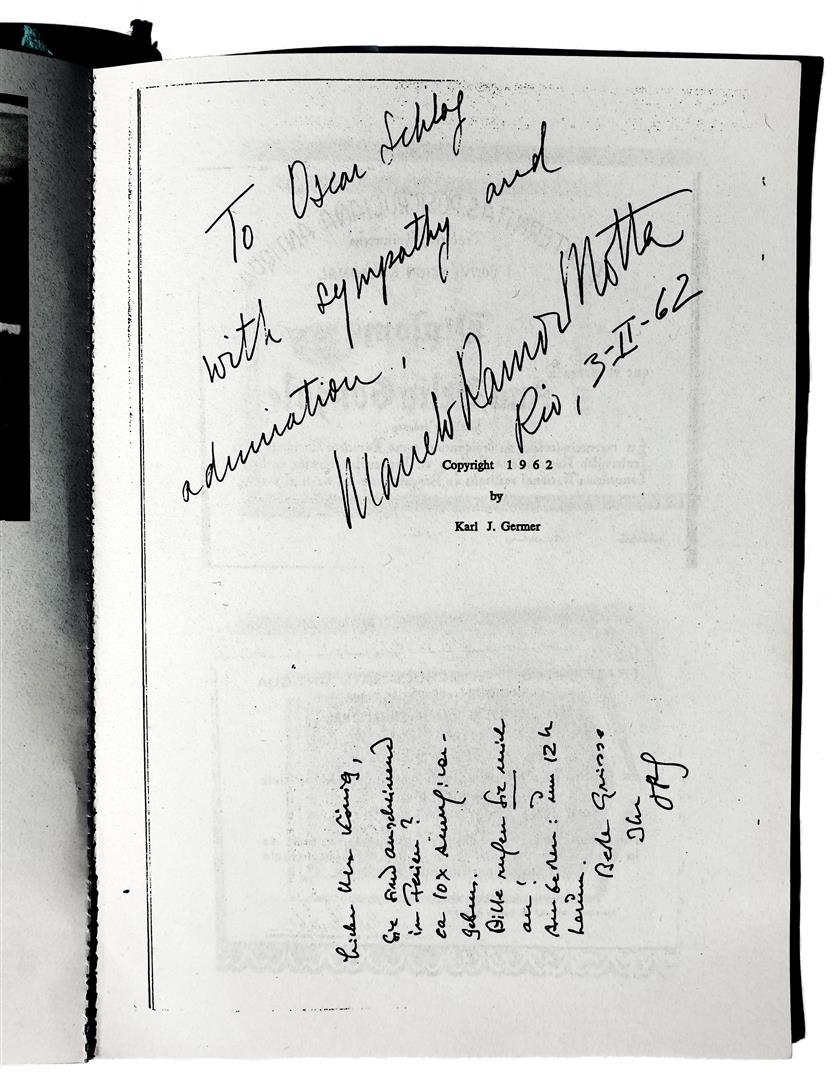 To Oscar Schlag
with sympathy and
admiration,
Marcelo Ramos Motta
Rio, 3-II-62
Copyright 1962
by
Karl J. Germer
Lieber Herr König,
Sie sind anscheinend
in Ferien?
ca 10x
Bitte rufen Sie mich
an!
Am besten: Um 12h
herum.
Beste Grüsse
Ihr